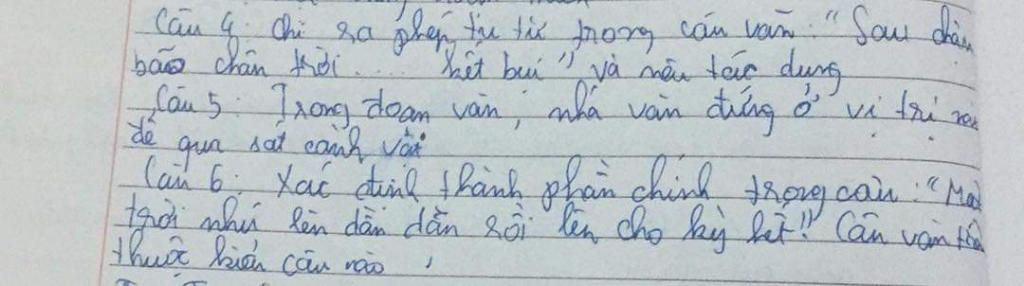 Câu 4: Chỉ ra phép tu từ trong câu văn: "Sau trận
bão chân trời.... hết bụi" và nêu tác dụng
Câu 5: Trong đoạn văn, nhà văn đứng ở vị trí nào
để quan sát cảnh vật
Câu 6: Xác định thành phần chính trong câu: "Mặt
trời nhú lên dần dần rồi lên cho kỳ hết". Câu văn trên
thuộc kiểu câu nào